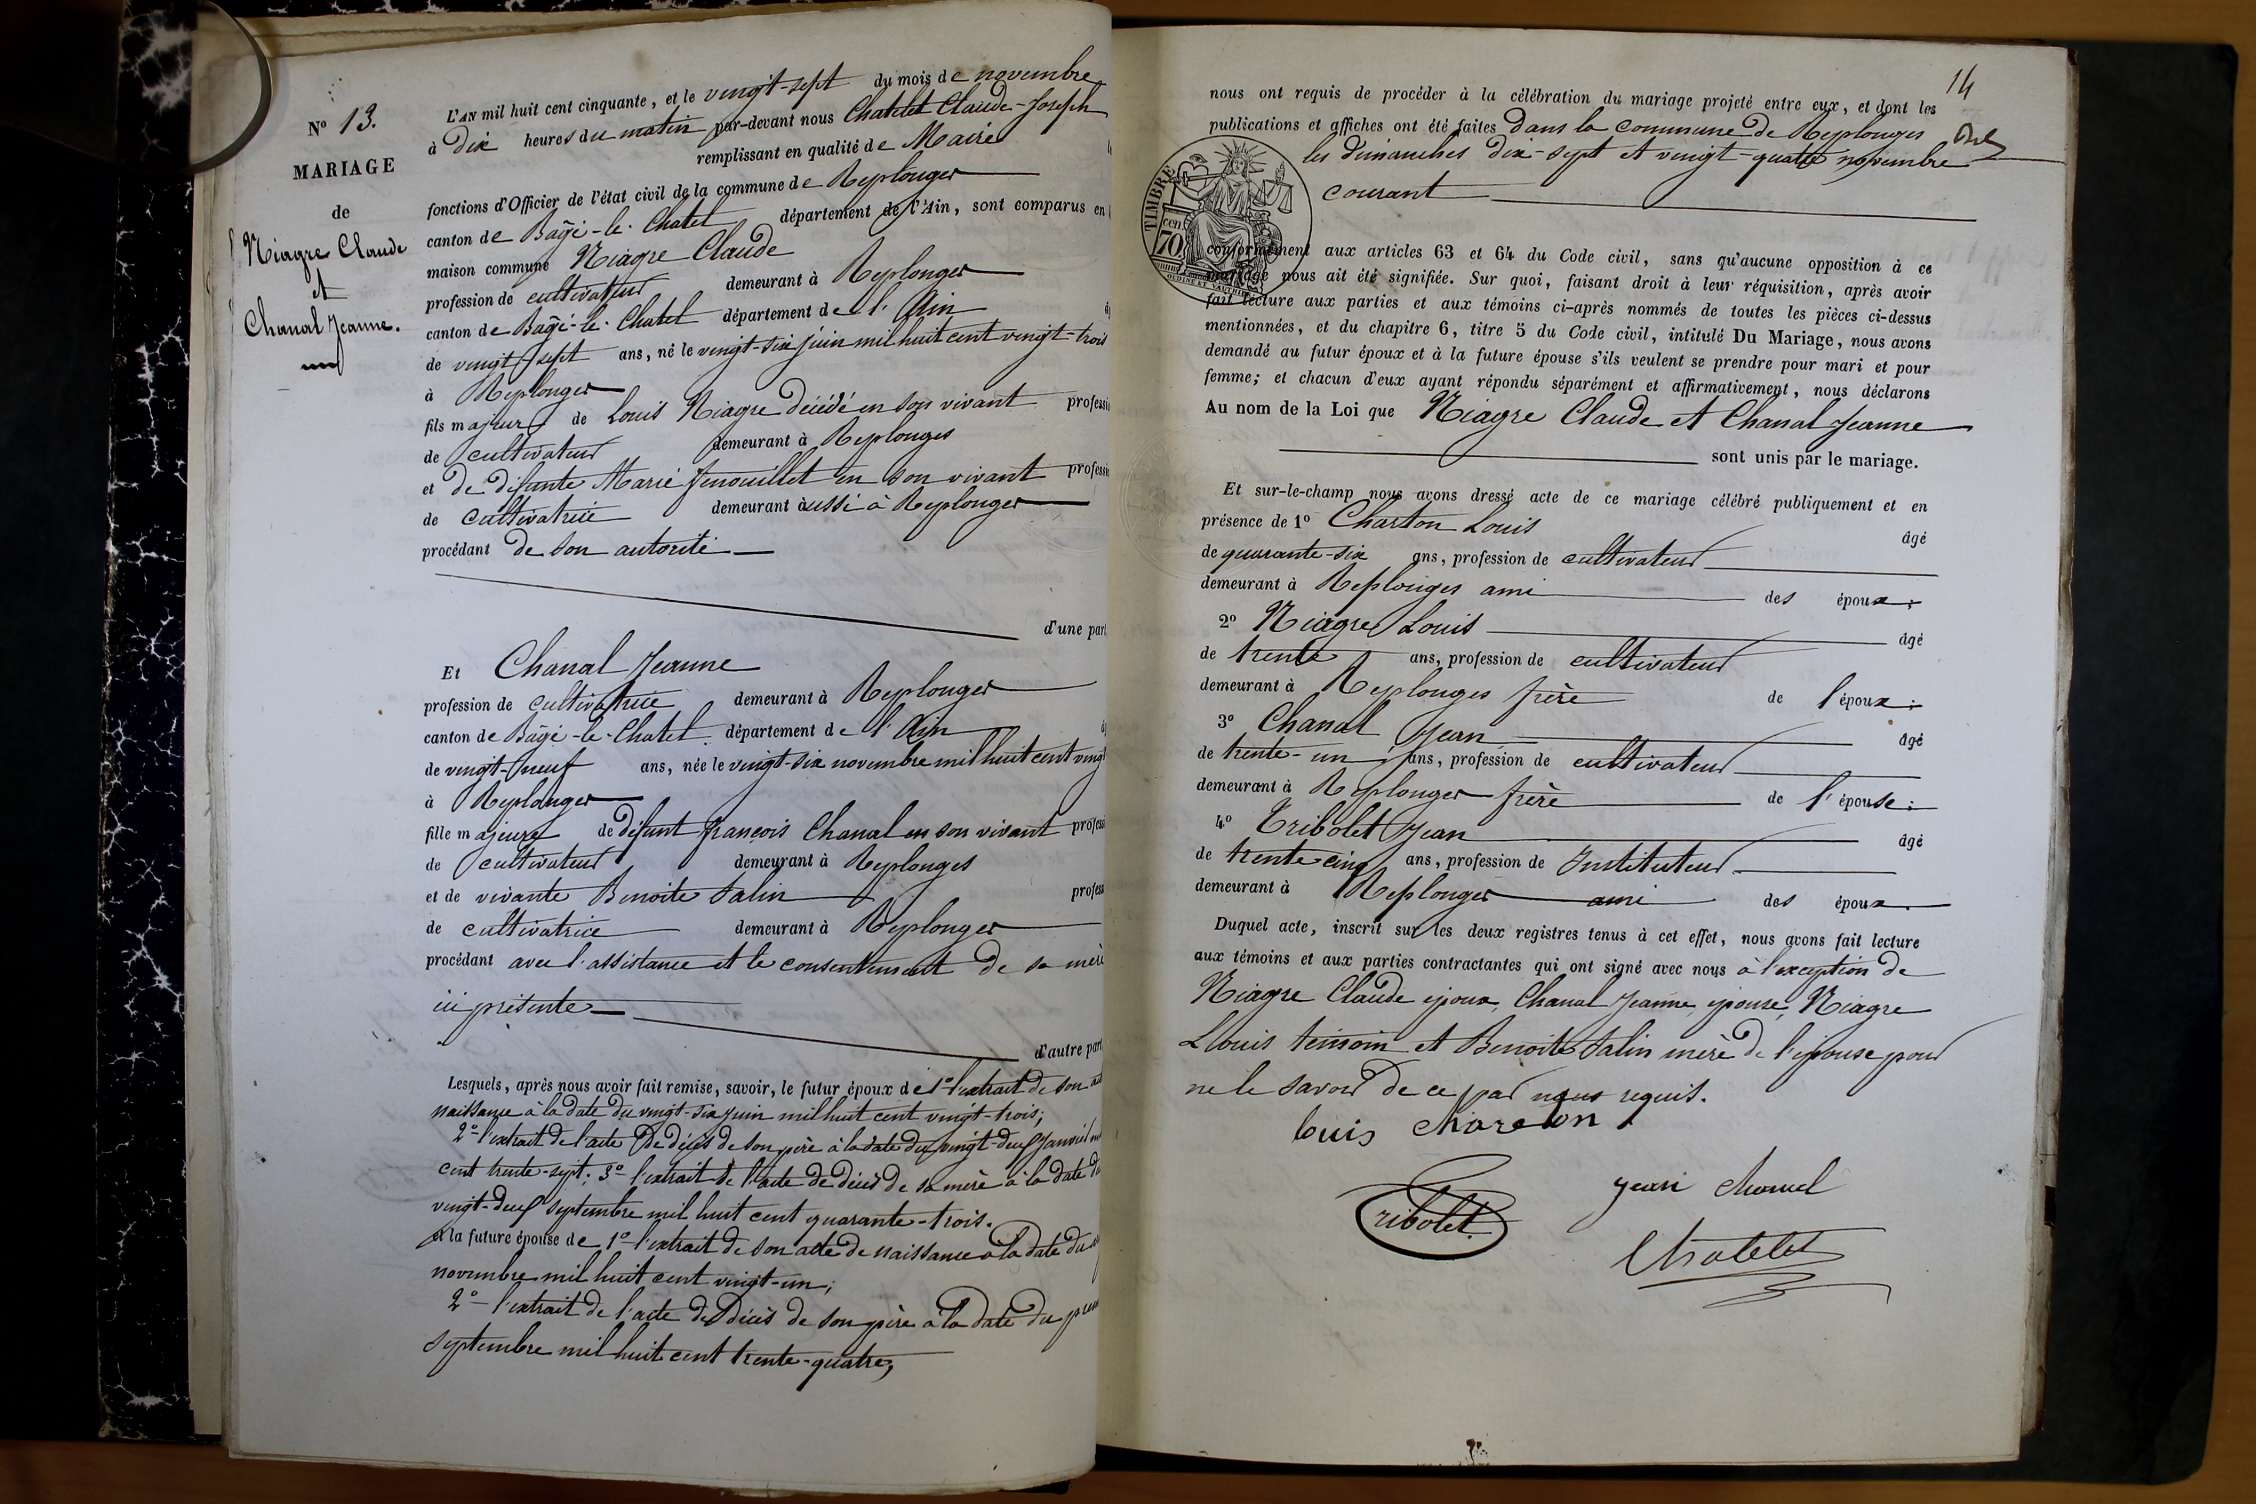 N° 13.
MARIAGE
de
Niagre Claude
et
Chanal Jeanne.
L'AN mil huit cent cinquante, et le vingt-sept du mois de novembre
à dix heures du matin par-devant nous Chatelet Claude-Joseph
remplissant en qualité de Maire
fonctions d'Officier de l'état civil de la commune de Replonges
canton de Bâgé-le-Chatel département de l'Ain, sont comparus en
maison commune Niagre Claude
profession de cultivateur demeurant à Replonges
canton de Bâgé-le-Chatel département de l'Ain
de vingt-sept ans, né le vingt-six juin mil huit cent vingt-trois
à Replonges
fils majeur de Louis Niagre décédé en son vivant professi
de cultivateur demeurant à Replonges
et de défunte Marie fenouillet en son vivant professi
de cultivatrice demeurant aussi à Replonges
procédant de son autorité
d'une part
Et Chanal Jeanne
profession de cultivatrice demeurant à Replonges
canton de Bâgé-le-Chatel département de l'Ain
de vingt-neuf ans, née le vingt-six novembre mil huit cent vingt
à Replonges
fille majeure de défunt françois Chanal en son vivant professi
de cultivateur demeurant à Replonges
et de vivante Benoite Salin profess
de cultivatrice demeurant à Replonges
procédant avec l'assistance et le consentement de sa mère
ici présente
d'autre part
Lesquels, après nous avoir fait remise, savoir, le futur époux de 1° l'extrait de son
naissance à la date du vingt-six juin mil huit cent vingt-trois;
2° l'extrait de l'acte de décès de son père à la date du vingt-deux Janvier
cent trente-sept; 3° l'extrait de l'acte de décès de sa mère à la date du
vingt-deux septembre mil huit cent quarante-trois.
et la future épouse de 1° l'extrait de son acte de naissance à la date du
novembre mil huit cent vingt-un;
2° l'extrait de l'acte de décès de son père à la date du
septembre mil huit cent trente-quatre,
14
nous ont requis de procéder à la célébration du mariage projeté entre eux, et dont les
publications et affiches ont été faites dans la commune de Replonges
les dimanches dix-sept et vingt-quatre novembre
courant
TIMBRE
cen.
70
conformément aux articles 63 et 64 du Code civil, sans qu'aucune opposition à ce
mariage nous ait été signifiée. Sur quoi, faisant droit à leur réquisition, après avoir
fait lecture aux parties et aux témoins ci-après nommés de toutes les pièces ci-dessus
mentionnées, et du chapitre 6, titre 5 du Code civil, intitulé Du Mariage, nous avons
demandé au futur époux et à la future épouse s'ils veulent se prendre pour mari et pour
femme; et chacun d'eux ayant répondu séparément et affirmativement, nous déclarons
Au nom de la Loi que Niagre Claude et Chanal Jeanne
sont unis par le mariage.
Et sur-le-champ nous avons dressé acte de ce mariage célébré publiquement et en
présence de 1° Charton Louis âgé
de quarante-six ans, profession de cultivateur
demeurant à Replonges ami des époux;
2° Niagre Louis âgé
de trente ans, profession de cultivateur
demeurant à Replonges frère de l'époux;
3° Chanal Jean âgé
de trente-un ans, profession de cultivateur
demeurant à Replonges frère de l'épouse;
4° Tribolet Jean âgé
de trente cinq ans, profession de Instituteur
demeurant à Replonges ami des époux.
Duquel acte, inscrit sur les deux registres tenus à cet effet, nous avons fait lecture
aux témoins et aux parties contractantes qui ont signé avec nous à l'exception de
Niagre Claude époux, Chanal Jeanne, épouse, Niagre
Louis témoin et Benoite Salin mère de l'épouse pour
ne le savoir de ce par nous requis.
louis Charton
Tribolet
jean chanel
Chatelet